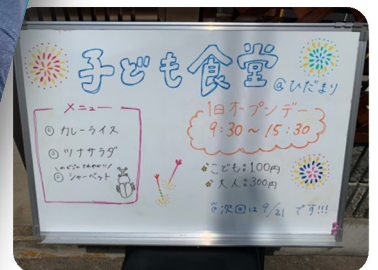 子ども食堂
@ひだまり
メニュー
① カレーライス
② ツナサラダ
③ シャーベット
1日オープンデー
9:30～15:30
こども:100円
大人:300円
次回は 9/21 です!!!